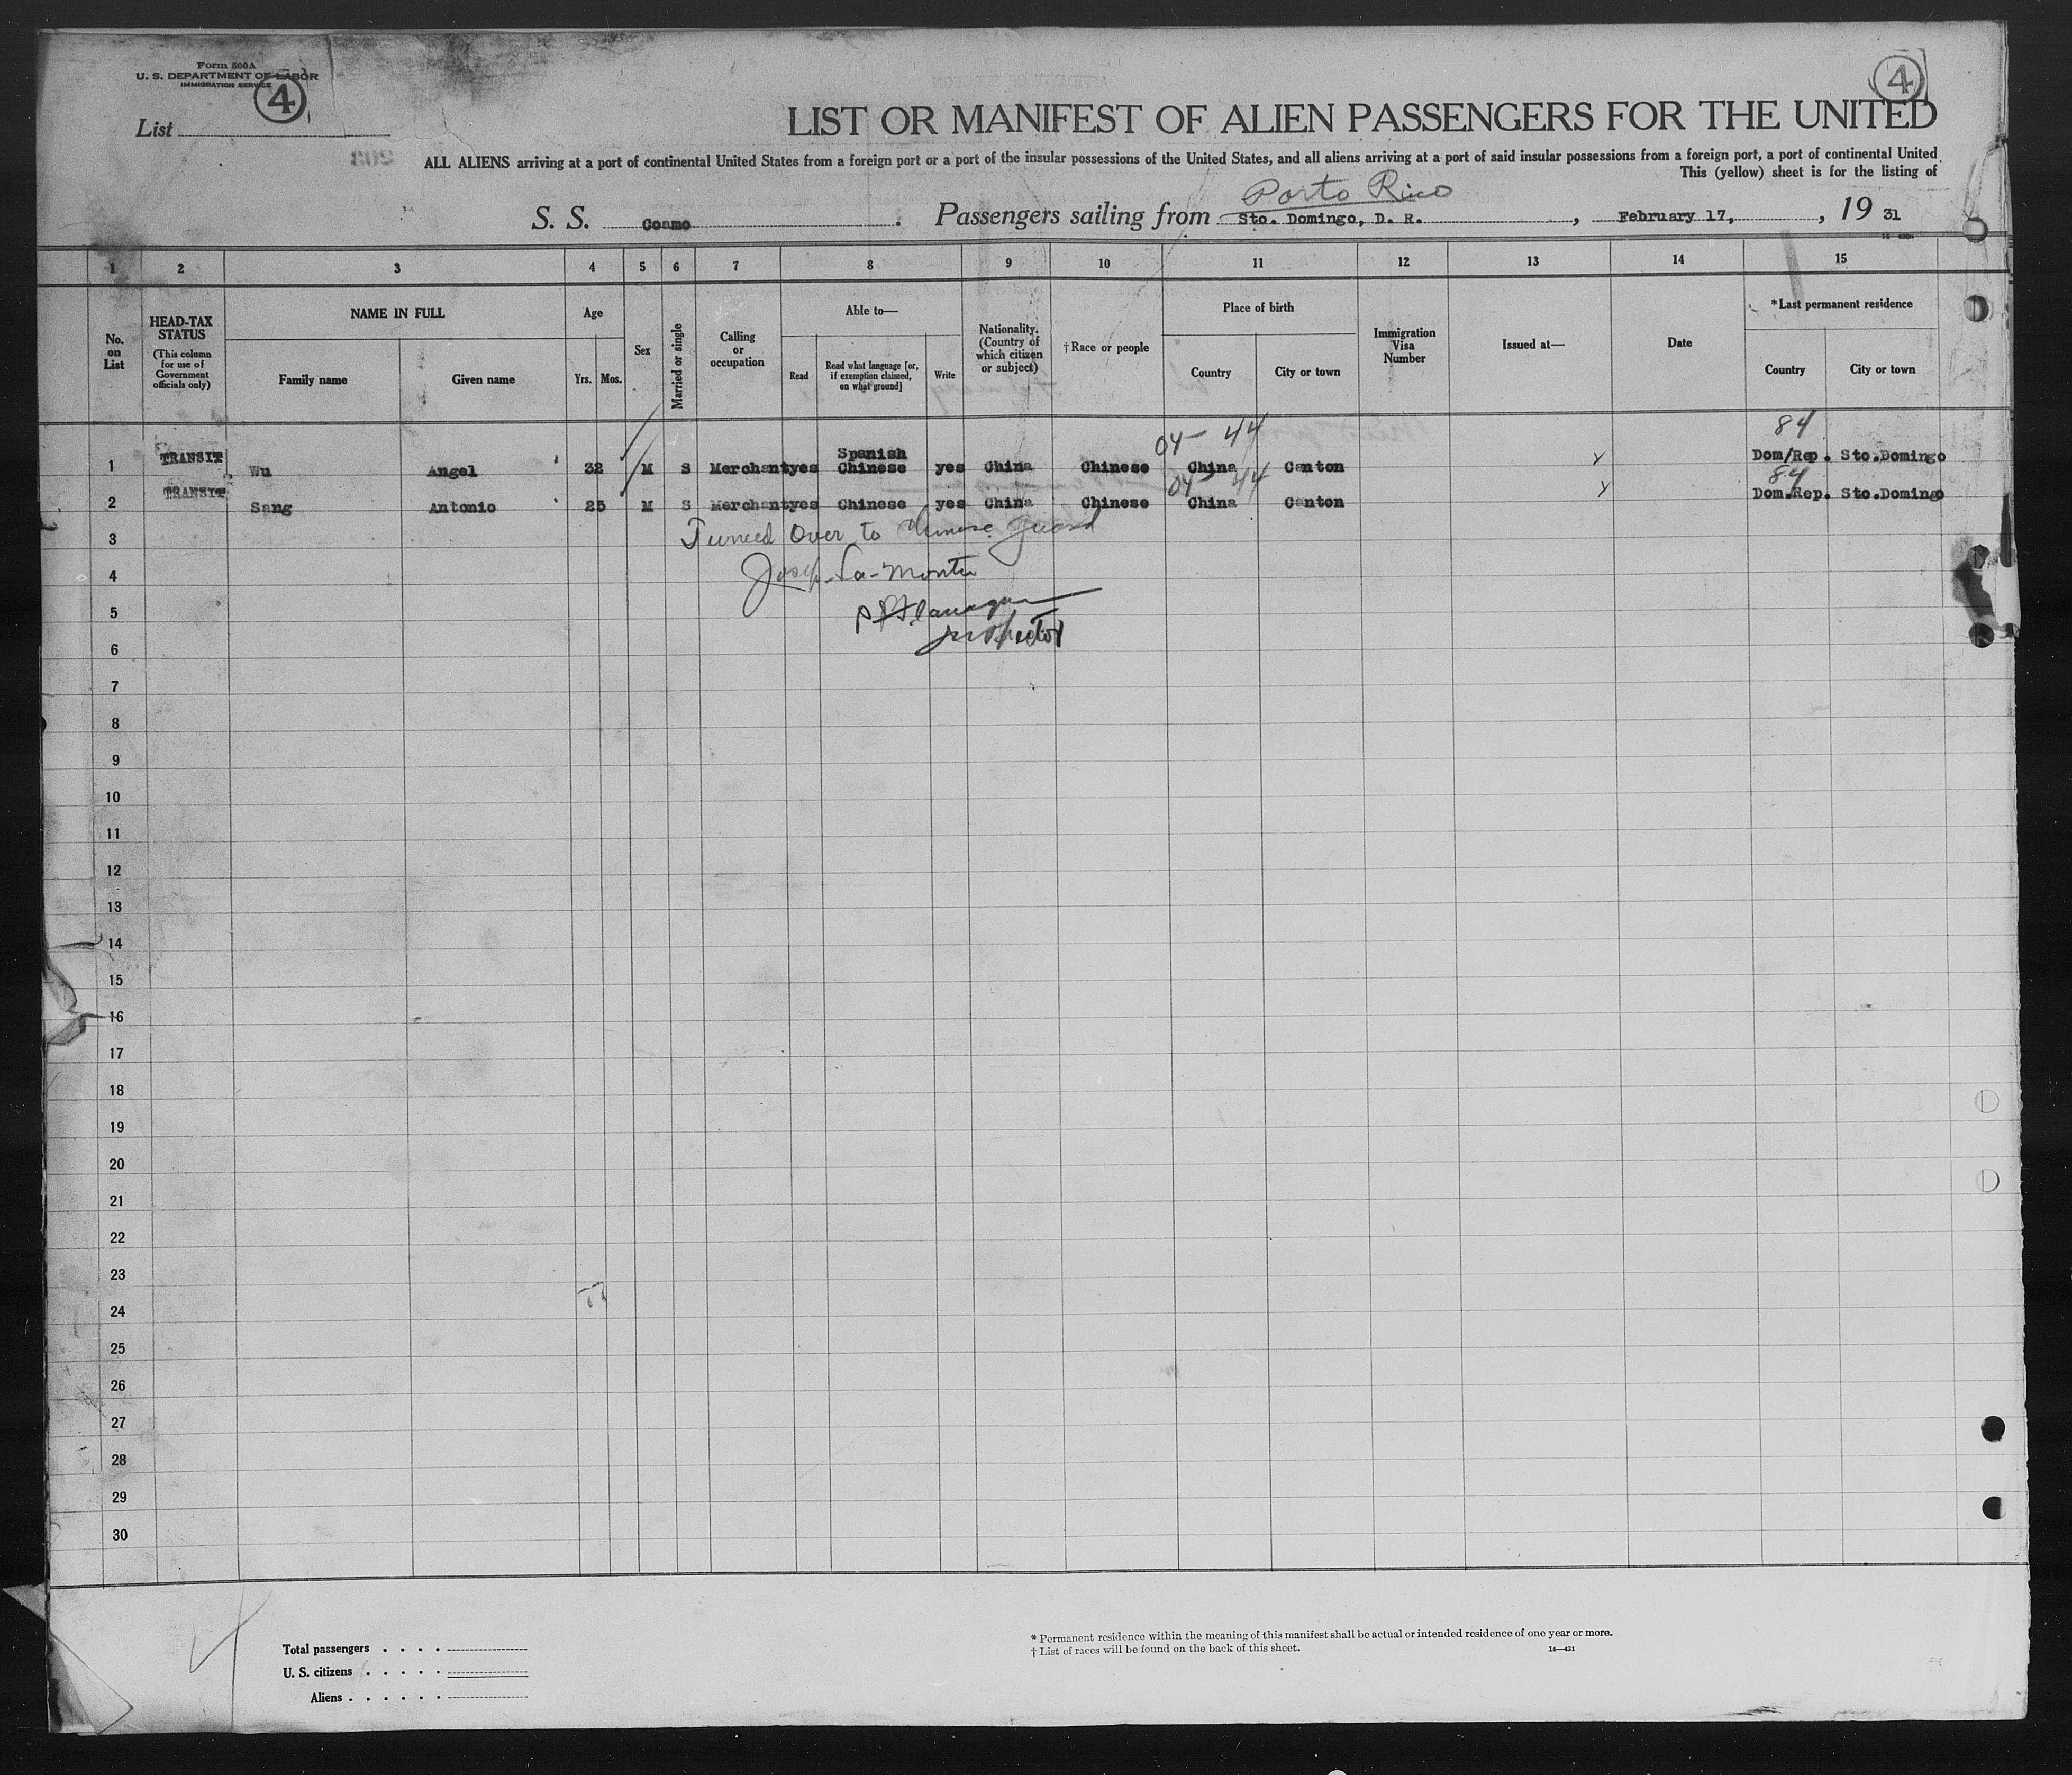 Form 500A
U. S. DEPARTMENT OF LABOR
IMMIGRATION SERVICE
4
4
List
LIST OR MANIFEST OF ALIEN PASSENGERS FOR THE UNITED
ALL ALIENS arriving at a port of continental United States from a foreign port or a port of the insular possessions of the United States, and all aliens arriving at a port of said insular possessions from a foreign port, a port of continental United
This (yellow) sheet is for the listing of
Porto Rico
S. S. Coamo. Passengers sailing from Sto. Domingo, D. R., February 17, , 19 31
1 2 3 4 5 6 7 8 9 10 11 12 13 14 15
No. on List
HEAD-TAX STATUS
(This column for use of Government officials only)
NAME IN FULL
Family name Given name
Age
Yrs. Mos.
Sex
Married or single
Calling or occupation
Able to—
Read
Read what language [or, if exemption claimed, on what ground]
Write
Nationality. (Country of which citizen or subject)
†Race or people
Place of birth
Country City or town
Immigration Visa Number
Issued at—
Date
*Last permanent residence
Country City or town
04- 44 84
Spanish
1 TRANSIT Wu Angel 32 M S Merchant yes Chinese yes China Chinese China Canton Dom/Rep. Sto.Domingo
04- 44 84
2 TRANSIT Sang Antonio 25 M S Merchant yes Chinese yes China Chinese China Canton Dom.Rep. Sto.Domingo
3 Turned Over to Chinese Guard
4
5
Inspector
6
7
8
9
10
11
12
13
14
15
16
17
18
19
20
21
22
23
24
25
26
27
28
29
30
Total passengers . . . .
U. S. citizens . . . . .
Aliens . . . . . .
* Permanent residence within the meaning of this manifest shall be actual or intended residence of one year or more.
† List of races will be found on the back of this sheet. 14—431